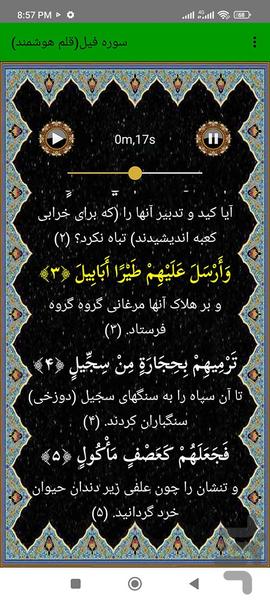 8:57 PM
سوره فیل(قلم هوشمند)
0m,17s
آیا کید و تدبیر آنها را (که برای خرابی
کعبه اندیشیدند) تباه نکرد؟ (۲)
وَأَرْسَلَ عَلَيْهِمْ طَيْرًا أَبَابِيلَ ﴿۳﴾
و بر هلاک آنها مرغانی گروه گروه
فرستاد. (۳)
تَرْمِيهِمْ بِحِجَارَةٍ مِنْ سِجِّيلٍ ﴿۴﴾
تا آن سپاه را به سنگهای سجّیل (دوزخی)
سنگباران کردند. (۴)
فَجَعَلَهُمْ كَعَصْفٍ مَأْكُولٍ ﴿۵﴾
و تنشان را چون علفی زیر دندان حیوان
خرد گردانید. (۵)